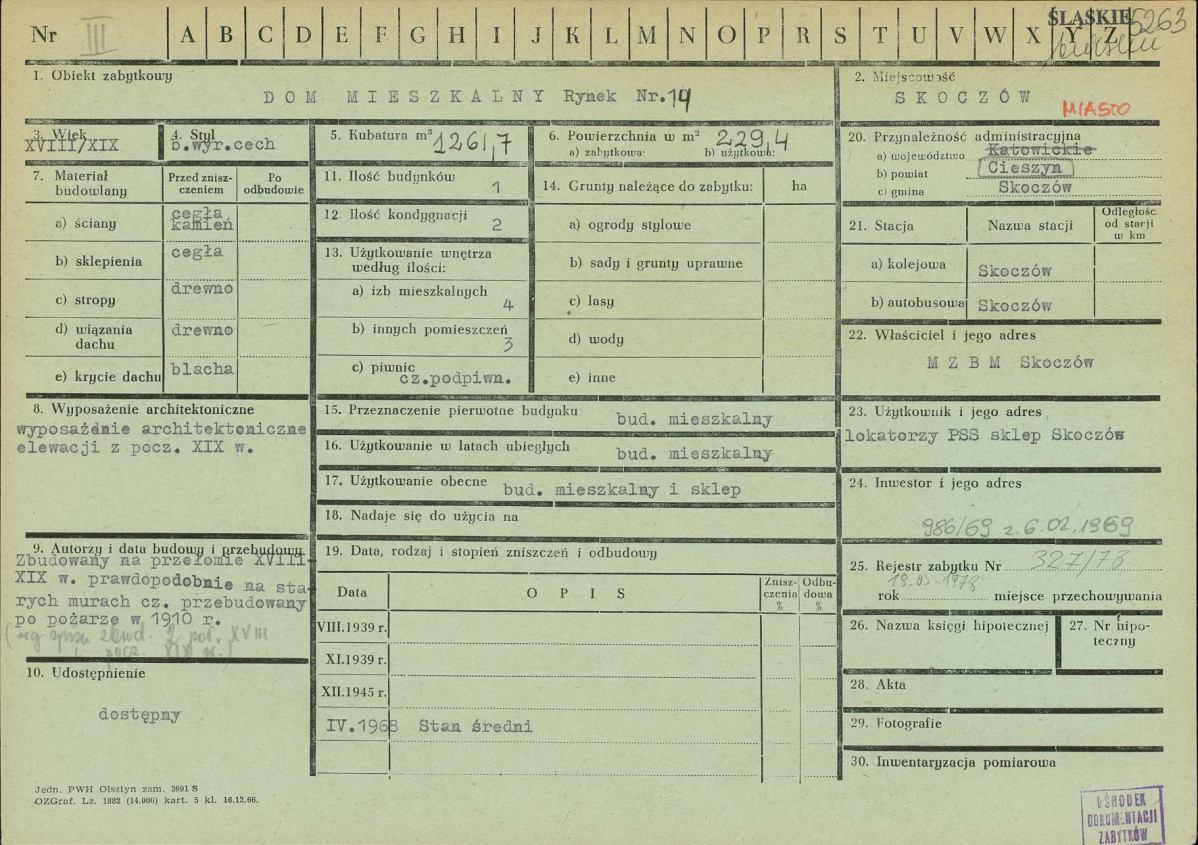 Nr III A B C D E F G H I J K L M N O P R S T U V W X Y Z
ŚLĄSKIE 5263
1. Obiekt zabytkowy
DOM MIESZKALNY Rynek Nr.14
2. Miejscowość
SKOCZÓW
MIASTO
3. Wiek
XVIII/XIX
4. Styl
b.wyr.cech
5. Kubatura m³
1261,7
6. Powierzchnia w m²
229,4
a) zabytkowa: b) użytkowa:
20. Przynależność administracyjna
a) województwo Katowickie
b) powiat Cieszyn
c) gmina Skoczów
7. Materiał budowlany
Przed zniszczeniem
Po odbudowie
a) ściany cegła kamień
b) sklepienia cegła
c) stropy drewno
d) wiązania dachu drewno
e) krycie dachu blacha
11. Ilość budynków
1
12. Ilość kondygnacji
2
13. Użytkowanie wnętrza
według ilości:
a) izb mieszkalnych
4
b) innych pomieszczeń
3
c) piwnic
cz.podpiwn.
14. Grunty należące do zabytku: ha
a) ogrody stylowe
b) sady i grunty uprawne
c) lasy
d) wody
e) inne
21. Stacja
Nazwa stacji
Odległość
od stacji
w km
a) kolejowa Skoczów
b) autobusowa Skoczów
22. Właściciel i jego adres
M Z B M Skoczów
8. Wyposażenie architektoniczne
wyposażenie architektoniczne
elewacji z pocz. XIX w.
15. Przeznaczenie pierwotne budynku
bud. mieszkalny
16. Użytkowanie w latach ubiegłych
bud. mieszkalny
17. Użytkowanie obecne
bud. mieszkalny i sklep
18. Nadaje się do użycia na
23. Użytkownik i jego adres
lokatorzy PSS sklep Skoczów
24. Inwestor i jego adres
986/69 z 6.02.1969
9. Autorzy i data budowy i przebudowy
Zbudowany na przełomie XVIII-
XIX w. prawdopodobnie na sta-
rych murach cz. przebudowany
po pożarze w 1910 r.
pocz. XIX w.)
19. Data, rodzaj i stopień zniszczeń i odbudowy
Data
OPIS
Znisz-
czenia
%
Odbu-
dowa
%
VIII.1939 r.
XI.1939 r.
XII.1945 r.
IV.1968 Stan średni
25. Rejestr zabytku Nr 327/78
19.05.1978
rok miejsce przechowywania
26. Nazwa księgi hipotecznej
27. Nr hipo-
teczny
10. Udostępnienie
dostępny
28. Akta
29. Fotografie
30. Inwentaryzacja pomiarowa
Jedn. PWH Olsztyn zam. 3991 S
OZGraf. Lz. 1882 (14.000) kart. 5 kl. 16.12.66.
OŚRODEK
DOKUMENTACJI
ZABYTKÓW